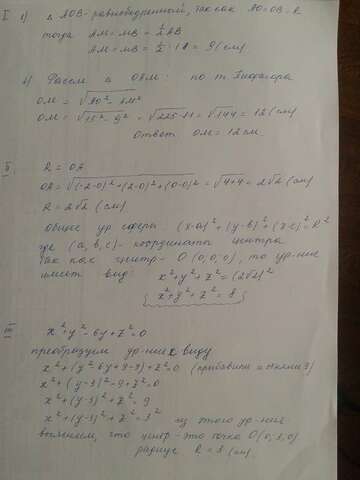 I 1) △ AOB - равнобедренный, так как AO=OB=R
тогда AM=MB=½AB
AM=MB=½·18=9(см)
2) Рассм △ OBM: по т. Пифагора
OM=√
OM=√15²-9²=√225-81=√144=12(см)
Ответ OM=12см
II R=OA
OA=√(-2-0)²+(2-0)²+(0-0)²=√4+4=2√2(см)
R=2√2(см)
Общее ур сферы (x-a)²+(y-b)²+(z-c)²=R²
где (a,b,c)- координаты центра
Так как центр- O(0,0,0), то ур-ние
имеет вид: x²+y²+z²=(2√2)²
x²+y²+z²=8
III x²+y²-6y+z²=0
преобразуем ур-ние к виду
x²+(y²-6y+9-9)+z²=0 (прибавим и вычтем 9)
x²+(y-3)²-9+z²=0
x²+(y-3)²+z²=9
x²+(y-3)²+z²=3² из этого ур-ния
выясняем, что центр - это точка O(0,3,0)
радиус R=3(см).